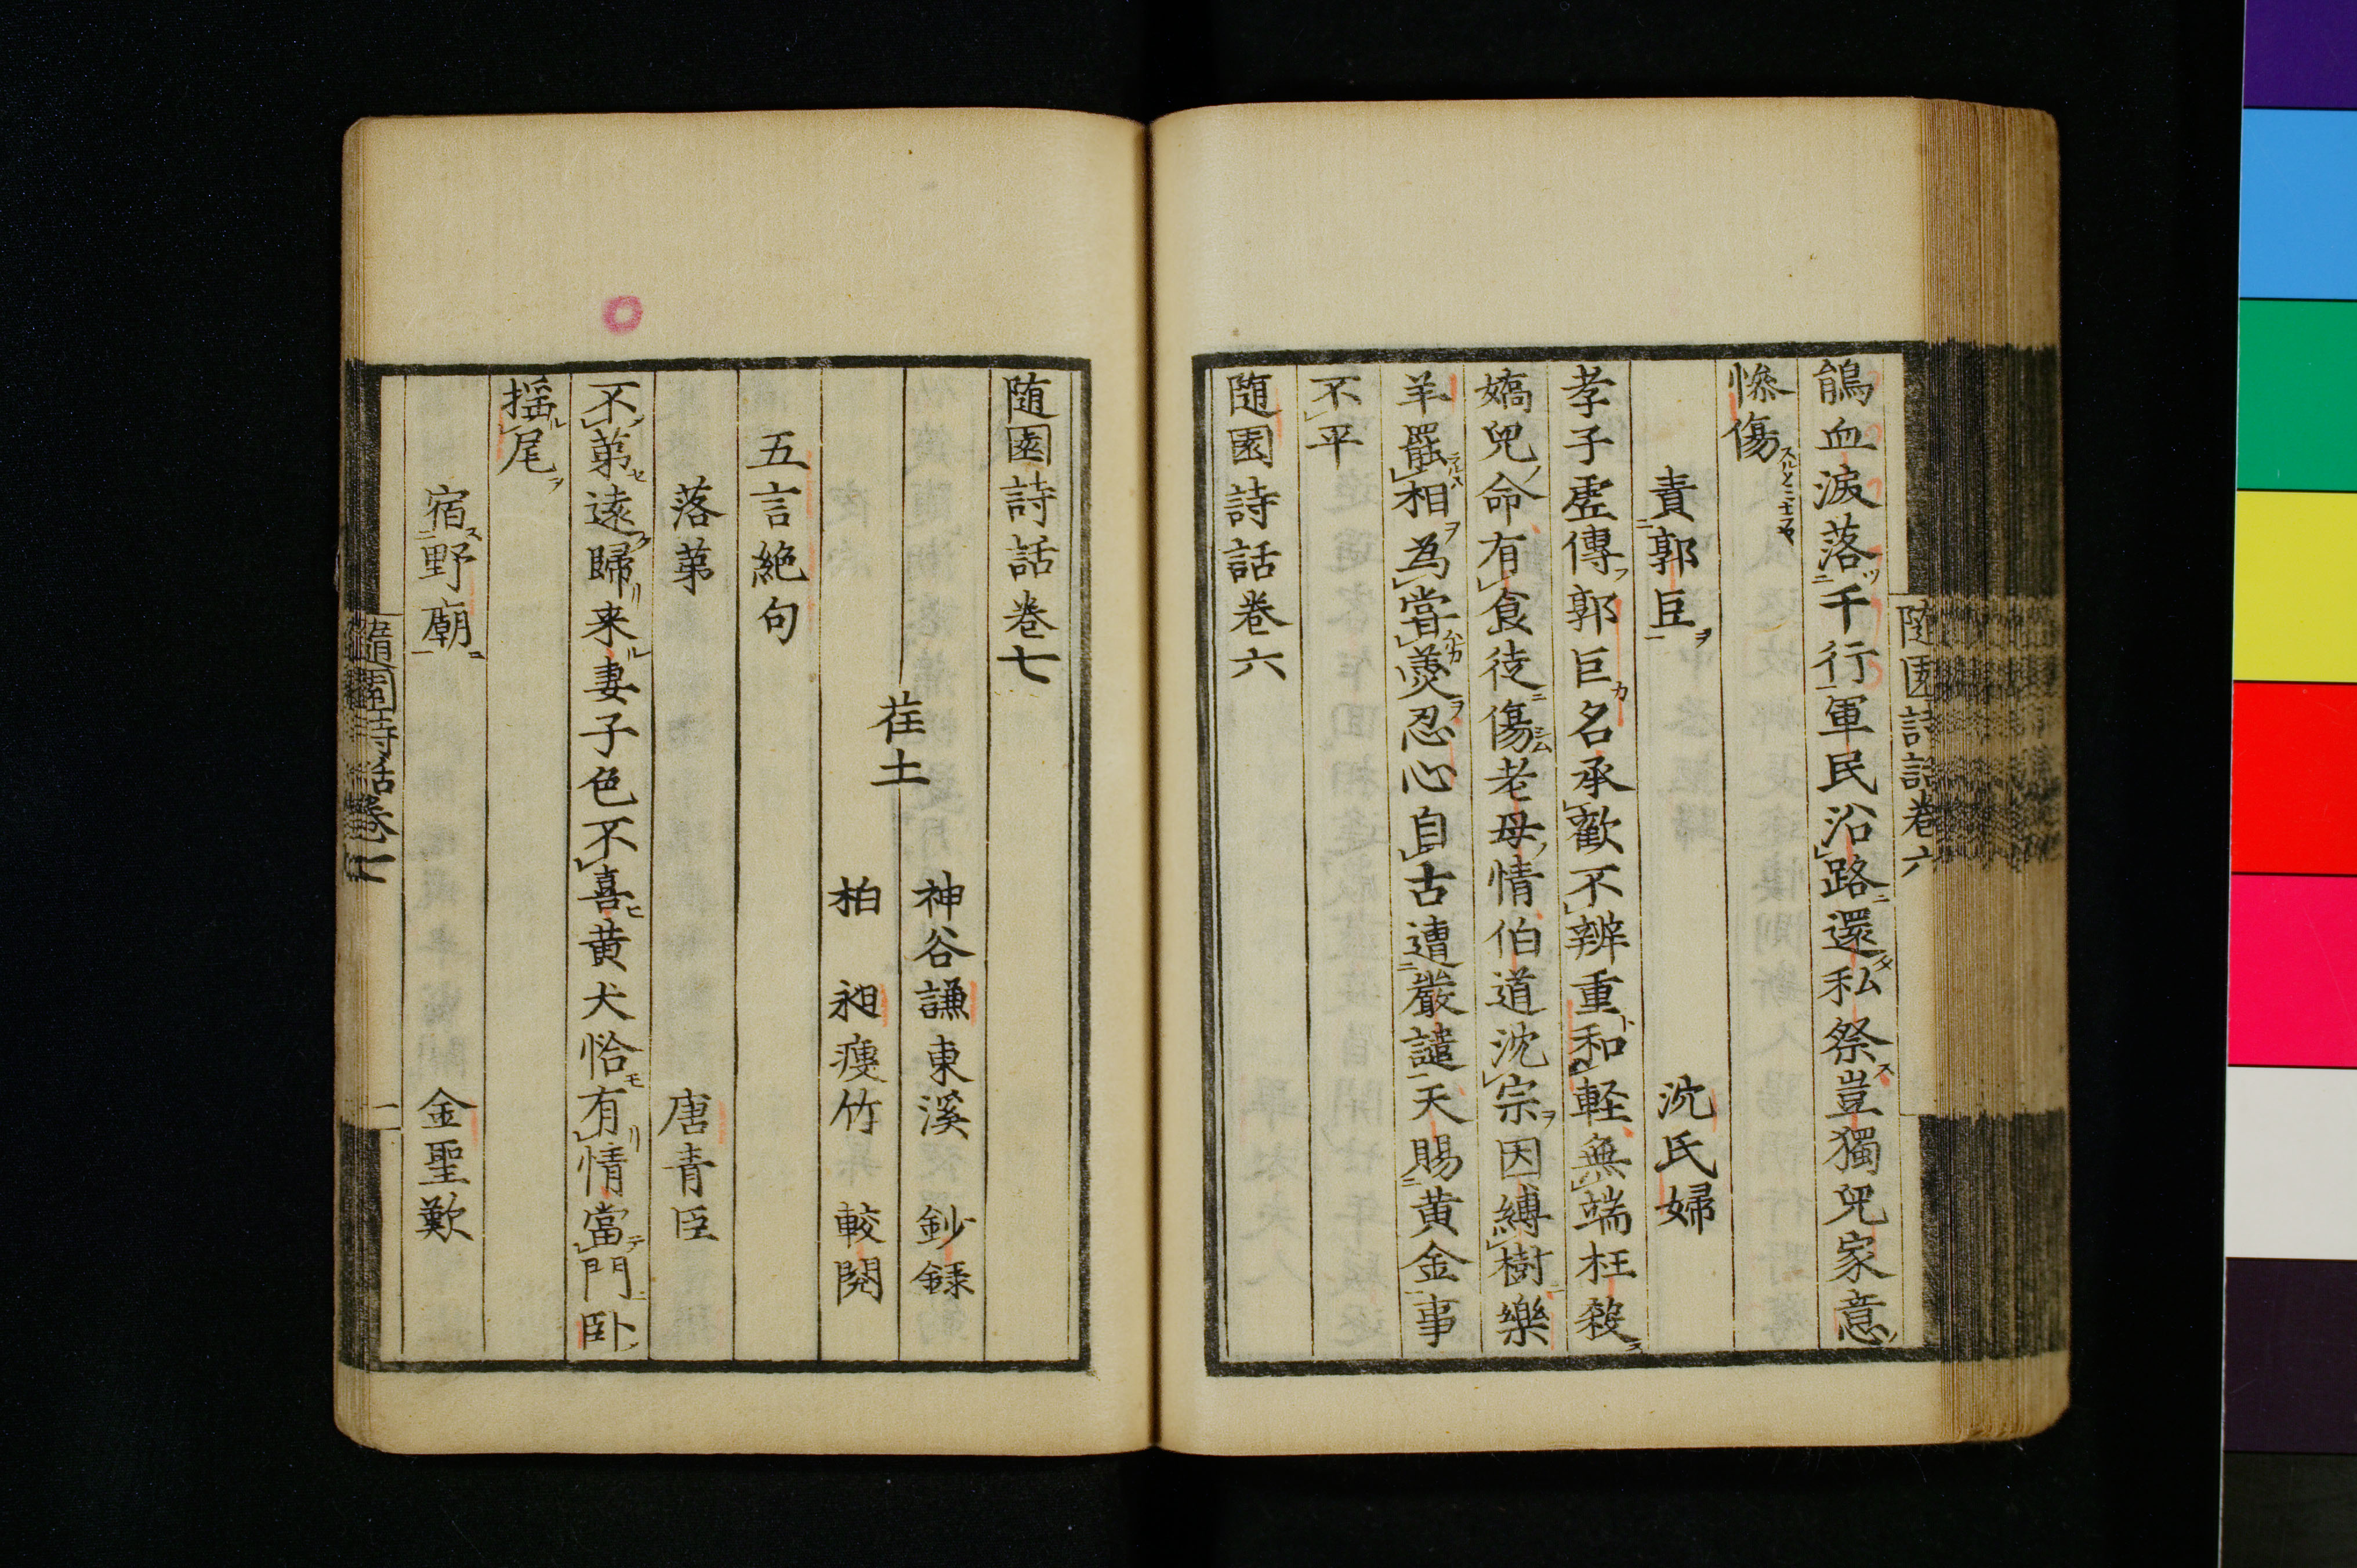 鵑血淚落千行軍民沿路還私祭豈獨兒家意
慘傷
責郭巨　沈氏婦
孝子虛傳郭巨名承歡不辨重和軽無端枉殺
嬌兒命有食徒傷老母情伯道沈宗因縛樹樂
羊罷相為嘗羹忍心自古遭嚴譴天賜黄金事
不平
随園詩話巻六
随園詩話巻六
随園詩話巻七
荏土
神谷謙東溪鈔録
柏昶痩竹較閱
五言絶句
落第　唐青臣
不第遠歸来妻子色不喜黄犬恰有情當門卧
揺尾
宿野廟　金聖歎